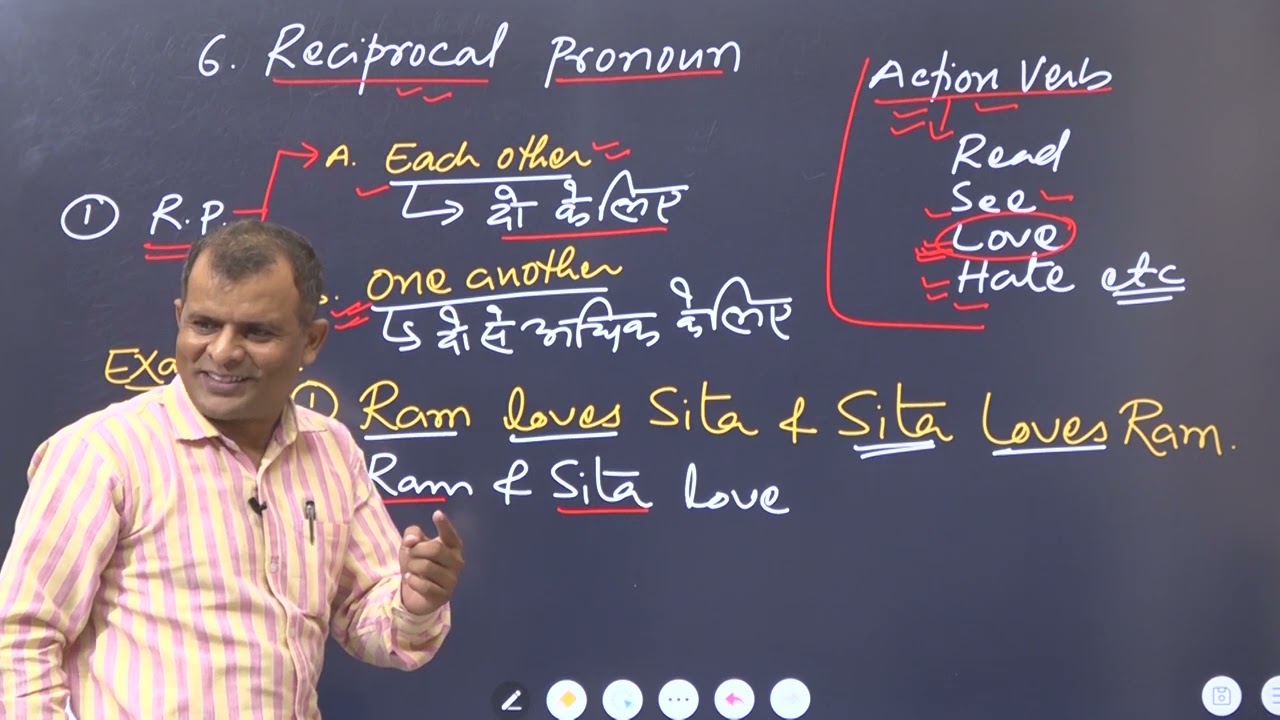 6. Reciprocal Pronoun
① R.P.
A. Each other
↳ दो के लिए
one another
↳ दो से अधिक के लिए
Action Verb
Read
See
Love
Hate etc
① Ram loves Sita & Sita Loves Ram.
Ram & Sita Love